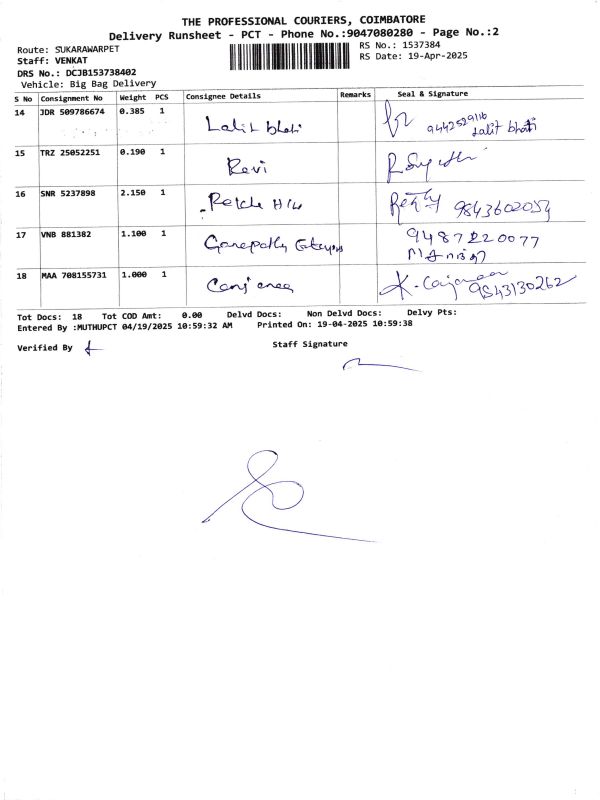 THE PROFESSIONAL COURIERS, COIMBATORE
Delivery Runsheet - PCT - Phone No.:9047080280 - Page No.:2
Route: SUKARAWARPET RS No.: 1537384
Staff: VENKAT RS Date: 19-Apr-2025
DRS No.: DCJB153738402
Vehicle: Big Bag Delivery
S No Consignment No Weight PCS Consignee Details Remarks Seal & Signature
14 JDR 509786674 0.385 1 Lalit bhati 9442529116
Lalit bhati
15 TRZ 25052251 0.190 1 Revi
16 SNR 5237898 2.150 1 9843602054
17 VNB 881382 1.100 1 Ganepathy 9487220077
18 MAA 708155731 1.000 1 9843130262
Tot Docs: 18 Tot COD Amt: 0.00 Delvd Docs: Non Delvd Docs: Delvy Pts:
Entered By :MUTHUPCT 04/19/2025 10:59:32 AM Printed On: 19-04-2025 10:59:38
Verified By Staff Signature